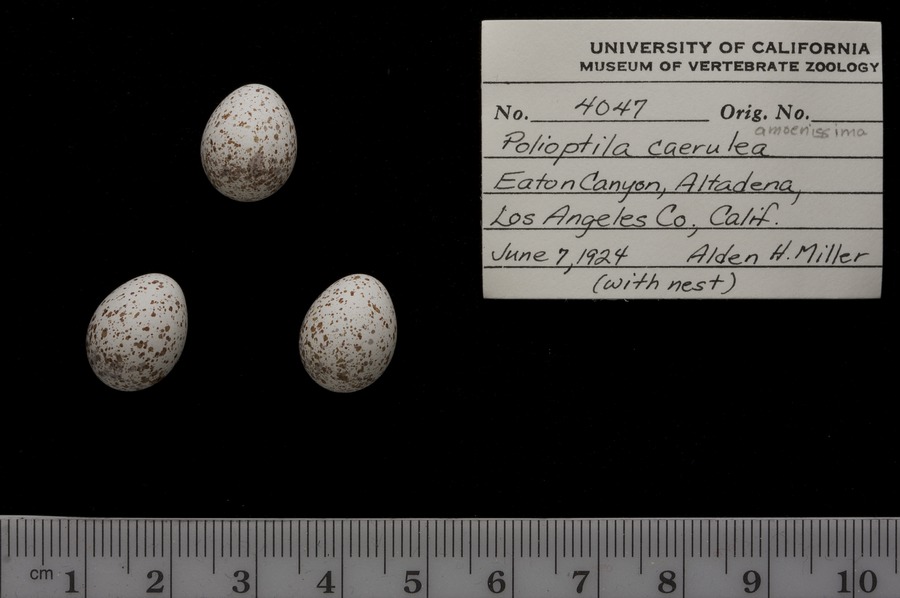 UNIVERSITY OF CALIFORNIA
MUSEUM OF VERTEBRATE ZOOLOGY
No. 4047 Orig. No.
amoenissima
Polioptila caerulea
Eaton Canyon, Altadena,
Los Angeles Co., Calif.
June 7, 1924 Alden H. Miller
(with nest)
cm 1 2 3 4 5 6 7 8 9 10